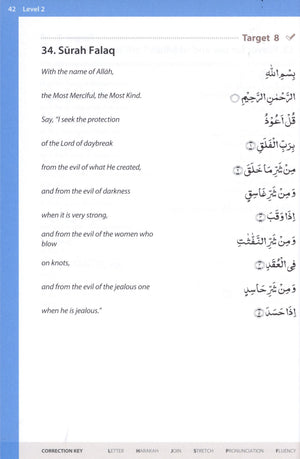 42 Level 2
Target 8
34. Sūrah Falaq
With the name of Allāh, بِسْمِ اللهِ
the Most Merciful, the Most Kind. الرَّحْمٰنِ الرَّحِيْمِ
Say, "I seek the protection قُلْ اَعُوْذُ
of the Lord of daybreak بِرَبِّ الْفَلَقِ ۝١
from the evil of what He created, مِنْ شَرِّ مَا خَلَقَ ۝٢
and from the evil of darkness وَمِنْ شَرِّ غَاسِقٍ
when it is very strong, اِذَا وَقَبَ ۝٣
and from the evil of the women who
blow وَمِنْ شَرِّ النَّفّٰثٰتِ
on knots, فِى الْعُقَدِ ۝٤
and from the evil of the jealous one وَمِنْ شَرِّ حَاسِدٍ
when he is jealous." اِذَا حَسَدَ ۝٥
CORRECTION KEY LETTER HARAKAH JOIN STRETCH PRONUNCIATION FLUENCY